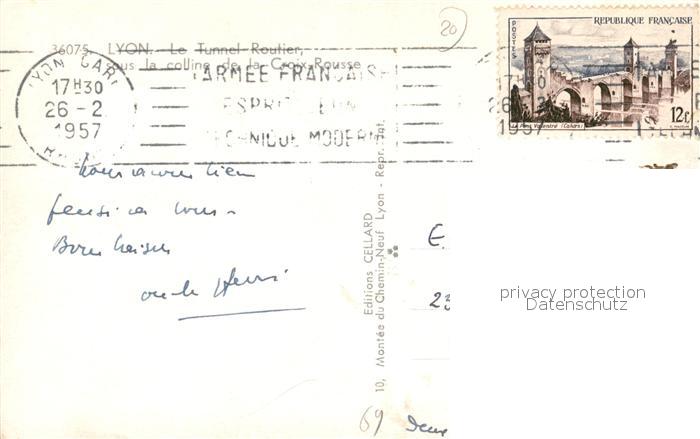 20
36075. LYON. - Le Tunnel Routier,
sous la colline de la Croix-Rousse
LYON GARE
17H30
26-2
1957
L'ARMEE FRANÇAISE
ESPRIT
TECHNIQUE MODERNE
POSTES
REPUBLIQUE FRANÇAISE
12F
Le Pont Valentré (Cahors)
1957
Nous avons bien
pensé à vous.
Bons baisers
oncle Henri
Editions CELLARD
10, Montée du Chemin-Neuf Lyon - Repr. Int.
E.
23
69
privacy protection
Datenschutz